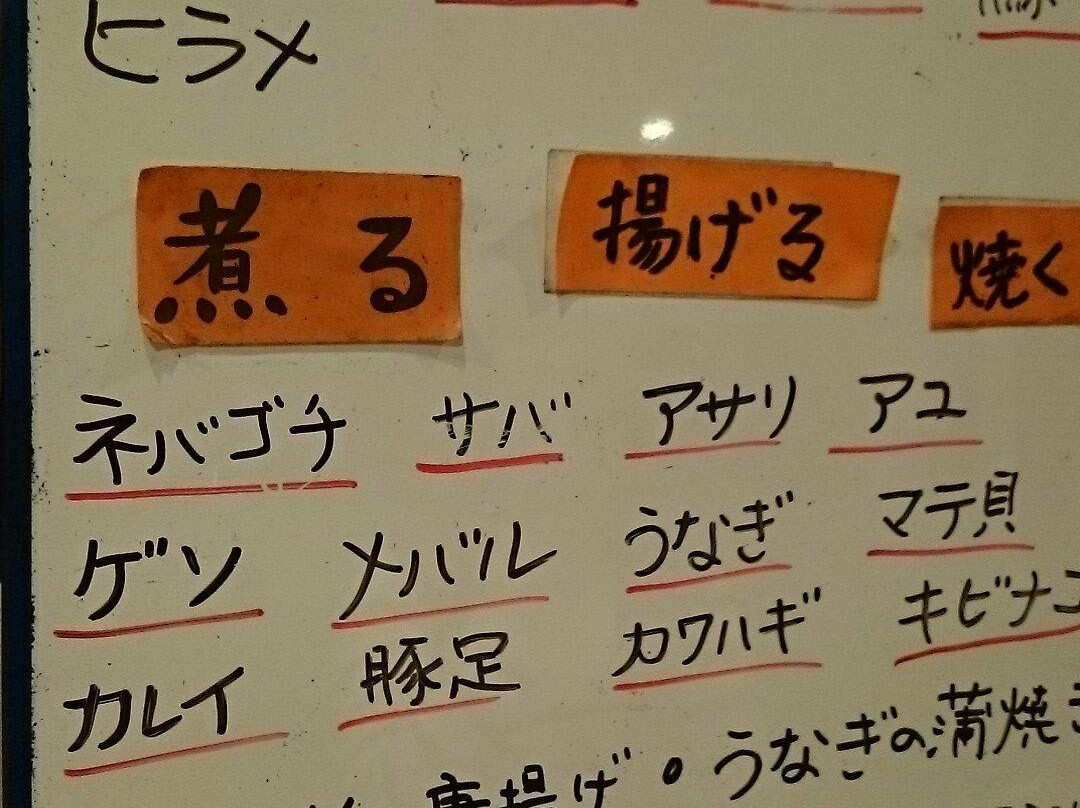 ヒラメ
煮る 揚げる 焼く
ネバゴチ サバ アサリ アユ
ゲソ メバル うなぎ マテ貝
カレイ 豚足 カワハギ キビナゴ
唐揚げ・うなぎの蒲焼き